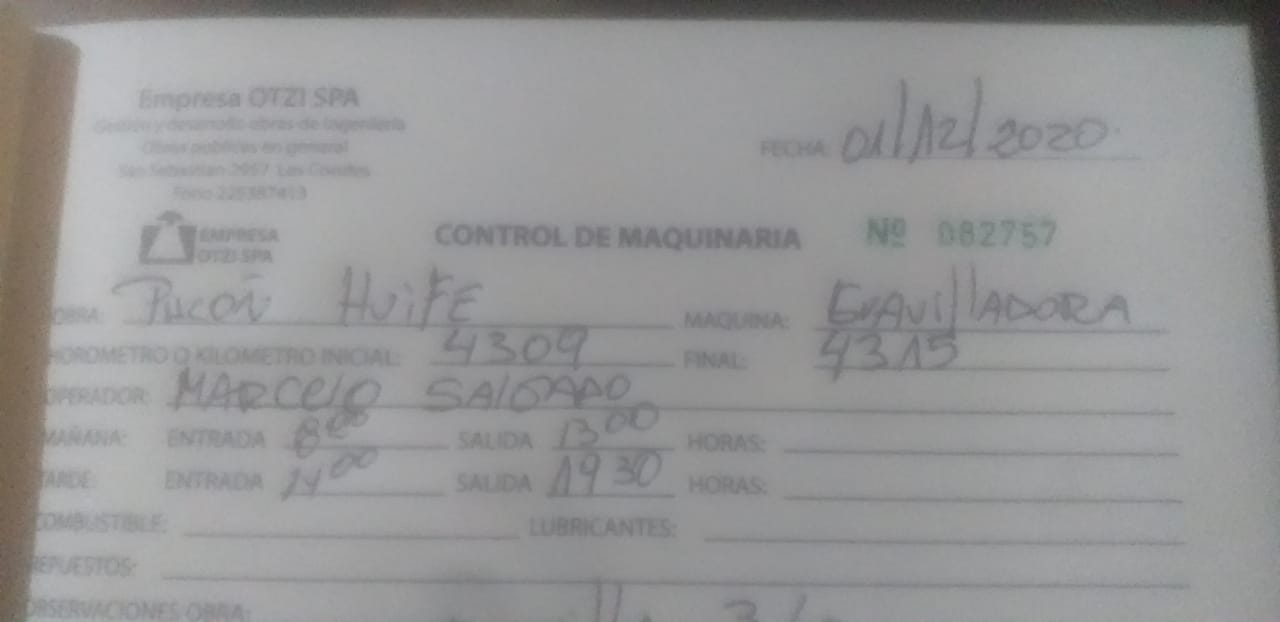 Empresa OTZI SPA
Gestión y desarrollo obras de Ingeniería
Obras públicas en general
San Sebastian 2957 Las Condes
Fono 225387413
FECHA: 01/12/2020
EMPRESA
OTZI SPA
CONTROL DE MAQUINARIA Nº 082757
OBRA: Pucón HuiFE MAQUINA: GrAvillADORA
HOROMETRO O KILOMETRO INICIAL: 4309 FINAL: 4315
OPERADOR: MARCelO SAlGADO
MAÑANA: ENTRADA 8:00 SALIDA 13 00 HORAS:
TARDE: ENTRADA 14 00 SALIDA 19 30 HORAS:
COMBUSTIBLE: LUBRICANTES:
REPUESTOS:
OBSERVACIONES OBRA: